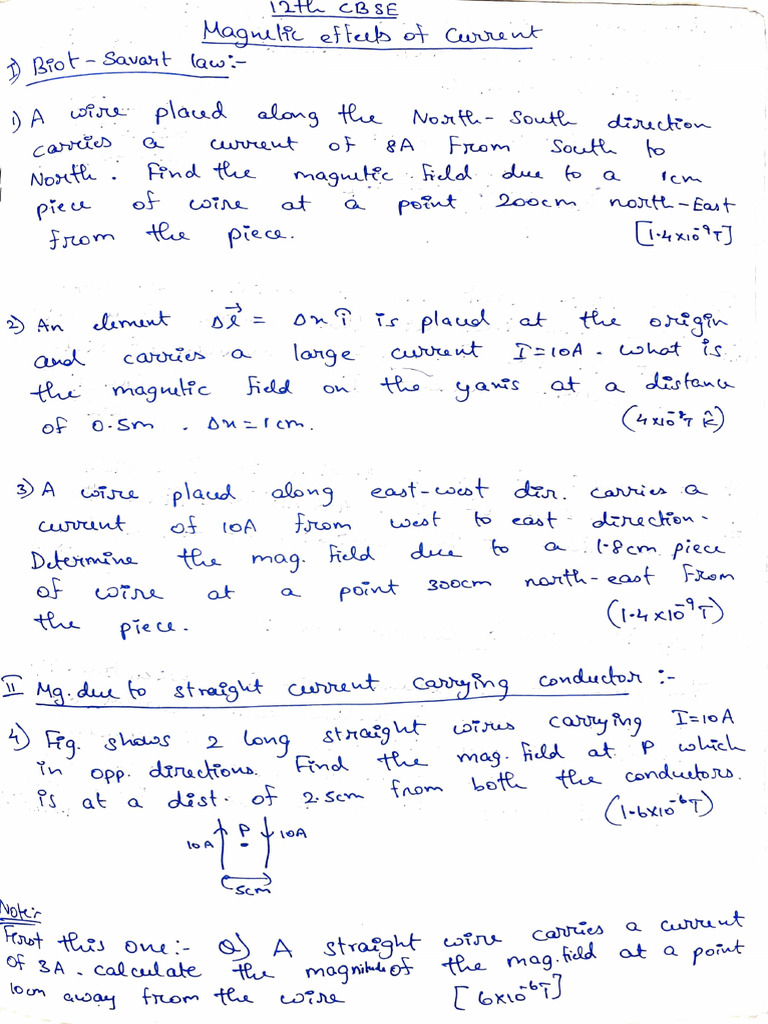 12th CBSE
Magnetic effects of Current
I) Biot-Savart law:-
1) A wire placed along the North-South direction
carries a current of 8A From South to
North. Find the magnetic field due to a 1cm
piece of wire at a point 200cm north-East
from the piece. [1.4×10⁻⁹T]
2) An element Δl⃗ = Δx î is placed at the origin
and carries a large current I=10A. What is
the magnetic field on the yaxis at a distance
of 0.5m. Δx=1cm. (4×10⁻⁸T k̂)
3) A wire placed along east-west dir. carries a
current of 10A from west to east direction.
Determine the mag. field due to a 1.8cm piece
of wire at a point 300cm north-east from
the piece. (1.4×10⁻⁹T)
II Mg. due to straight current carrying conductor :-
4) Fig. shows 2 long straight wires carrying I=10A
in opp. directions. Find the mag. field at P which
is at a dist. of 2.5cm from both the conductors.
(1.6×10⁻⁶T)
10A P 10A
5cm
Note:-
First this one:- Q) A straight wire carries a current
of 3A. calculate the magnitude of the mag. field at a point
10cm away from the wire [6×10⁻⁶T]